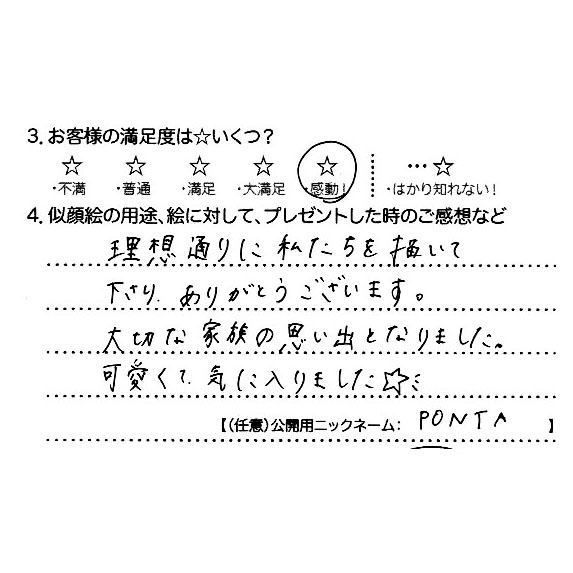 3. お客様の満足度は☆いくつ？
☆ ☆ ☆ ☆ ☆ …☆
・不満 ・普通 ・満足 ・大満足 ・感動！ ・はかり知れない！
4. 似顔絵の用途、絵に対して、プレゼントした時のご感想など
理想通りに私たちを描いて
下さり、ありがとうございます。
大切な家族の思い出となりました。
可愛くて、気に入りました☆ミ
【（任意）公開用ニックネーム： PONTA 】